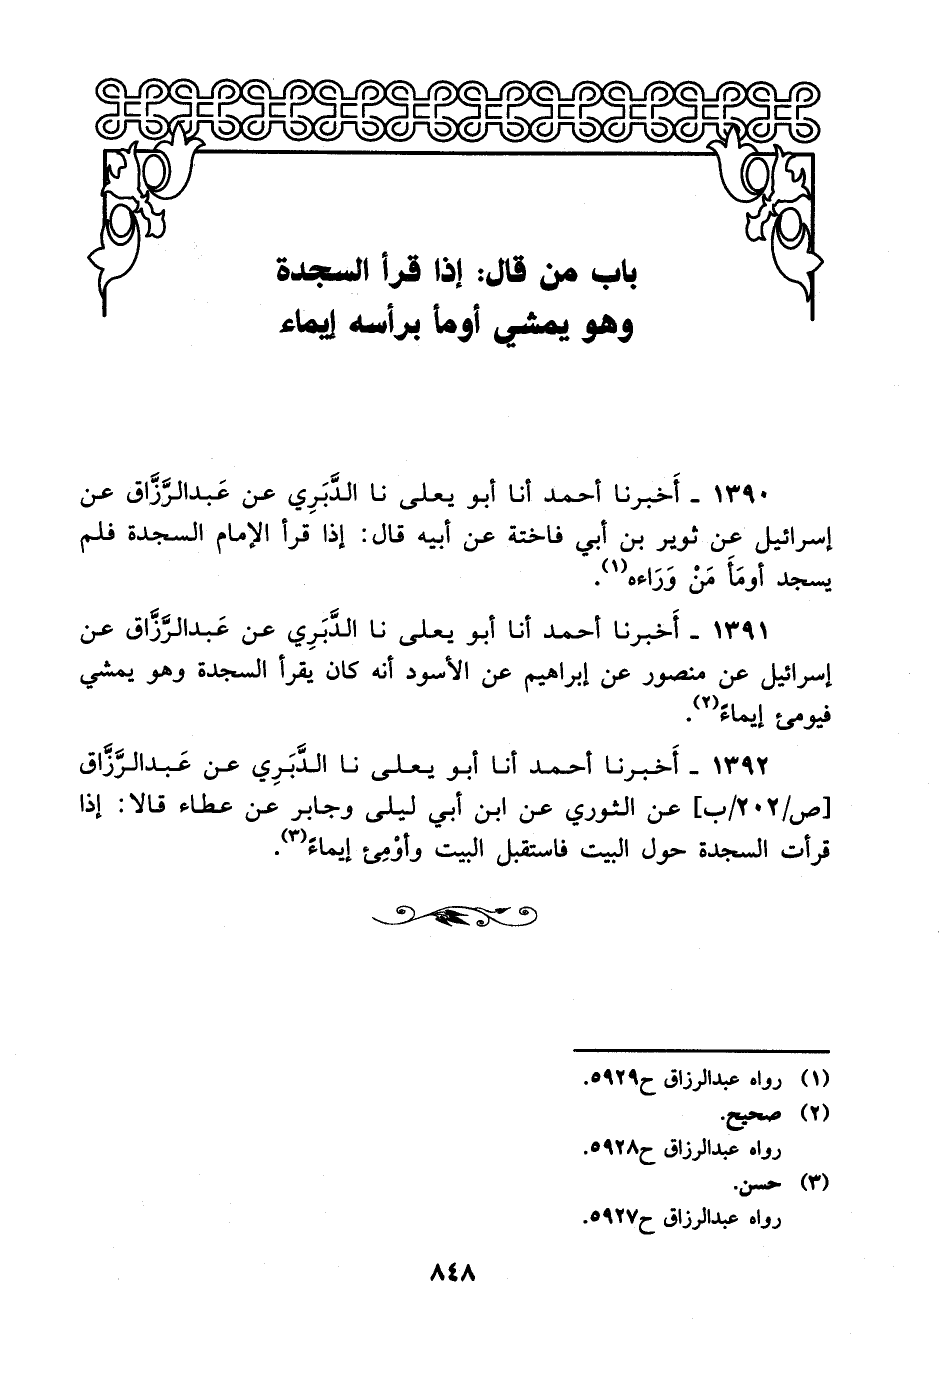 باب من قال: إذا قرأ السجدة
وهو يمشي أومأ برأسه إيماء
١٣٩٠ ـ أَخبرنا أحمد أنا أبو يعلى نا الدَّبَرِي عن عَبدالرَّزَّاق عن
إسرائيل عن ثوير بن أبي فاختة عن أبيه قال: إذا قرأ الإمام السجدة فلم
يسجد أومَأَ مَنْ وَرَاءه(١).
١٣٩١ ـ أَخبرنا أحمد أنا أبو يعلى نا الدَّبَرِي عن عَبدالرَّزَّاق عن
إسرائيل عن منصور عن إبراهيم عن الأسود أنه كان يقرأ السجدة وهو يمشي
فيومئ إيماءً(٢).
١٣٩٢ ـ أَخبرنا أحمد أنا أبو يعلى نا الدَّبَرِي عن عَبدالرَّزَّاق
[ص/٢٠٢/ب] عن الثوري عن ابن أبي ليلى وجابر عن عطاء قالا: إذا
قرأت السجدة حول البيت فاستقبل البيت وأوْمِئ إيماءً(٣).
(١) رواه عبدالرزاق ح٥٩٢٩.
(٢) صحيح.
رواه عبدالرزاق ح٥٩٢٨.
(٣) حسن.
رواه عبدالرزاق ح٥٩٢٧.
٨٤٨